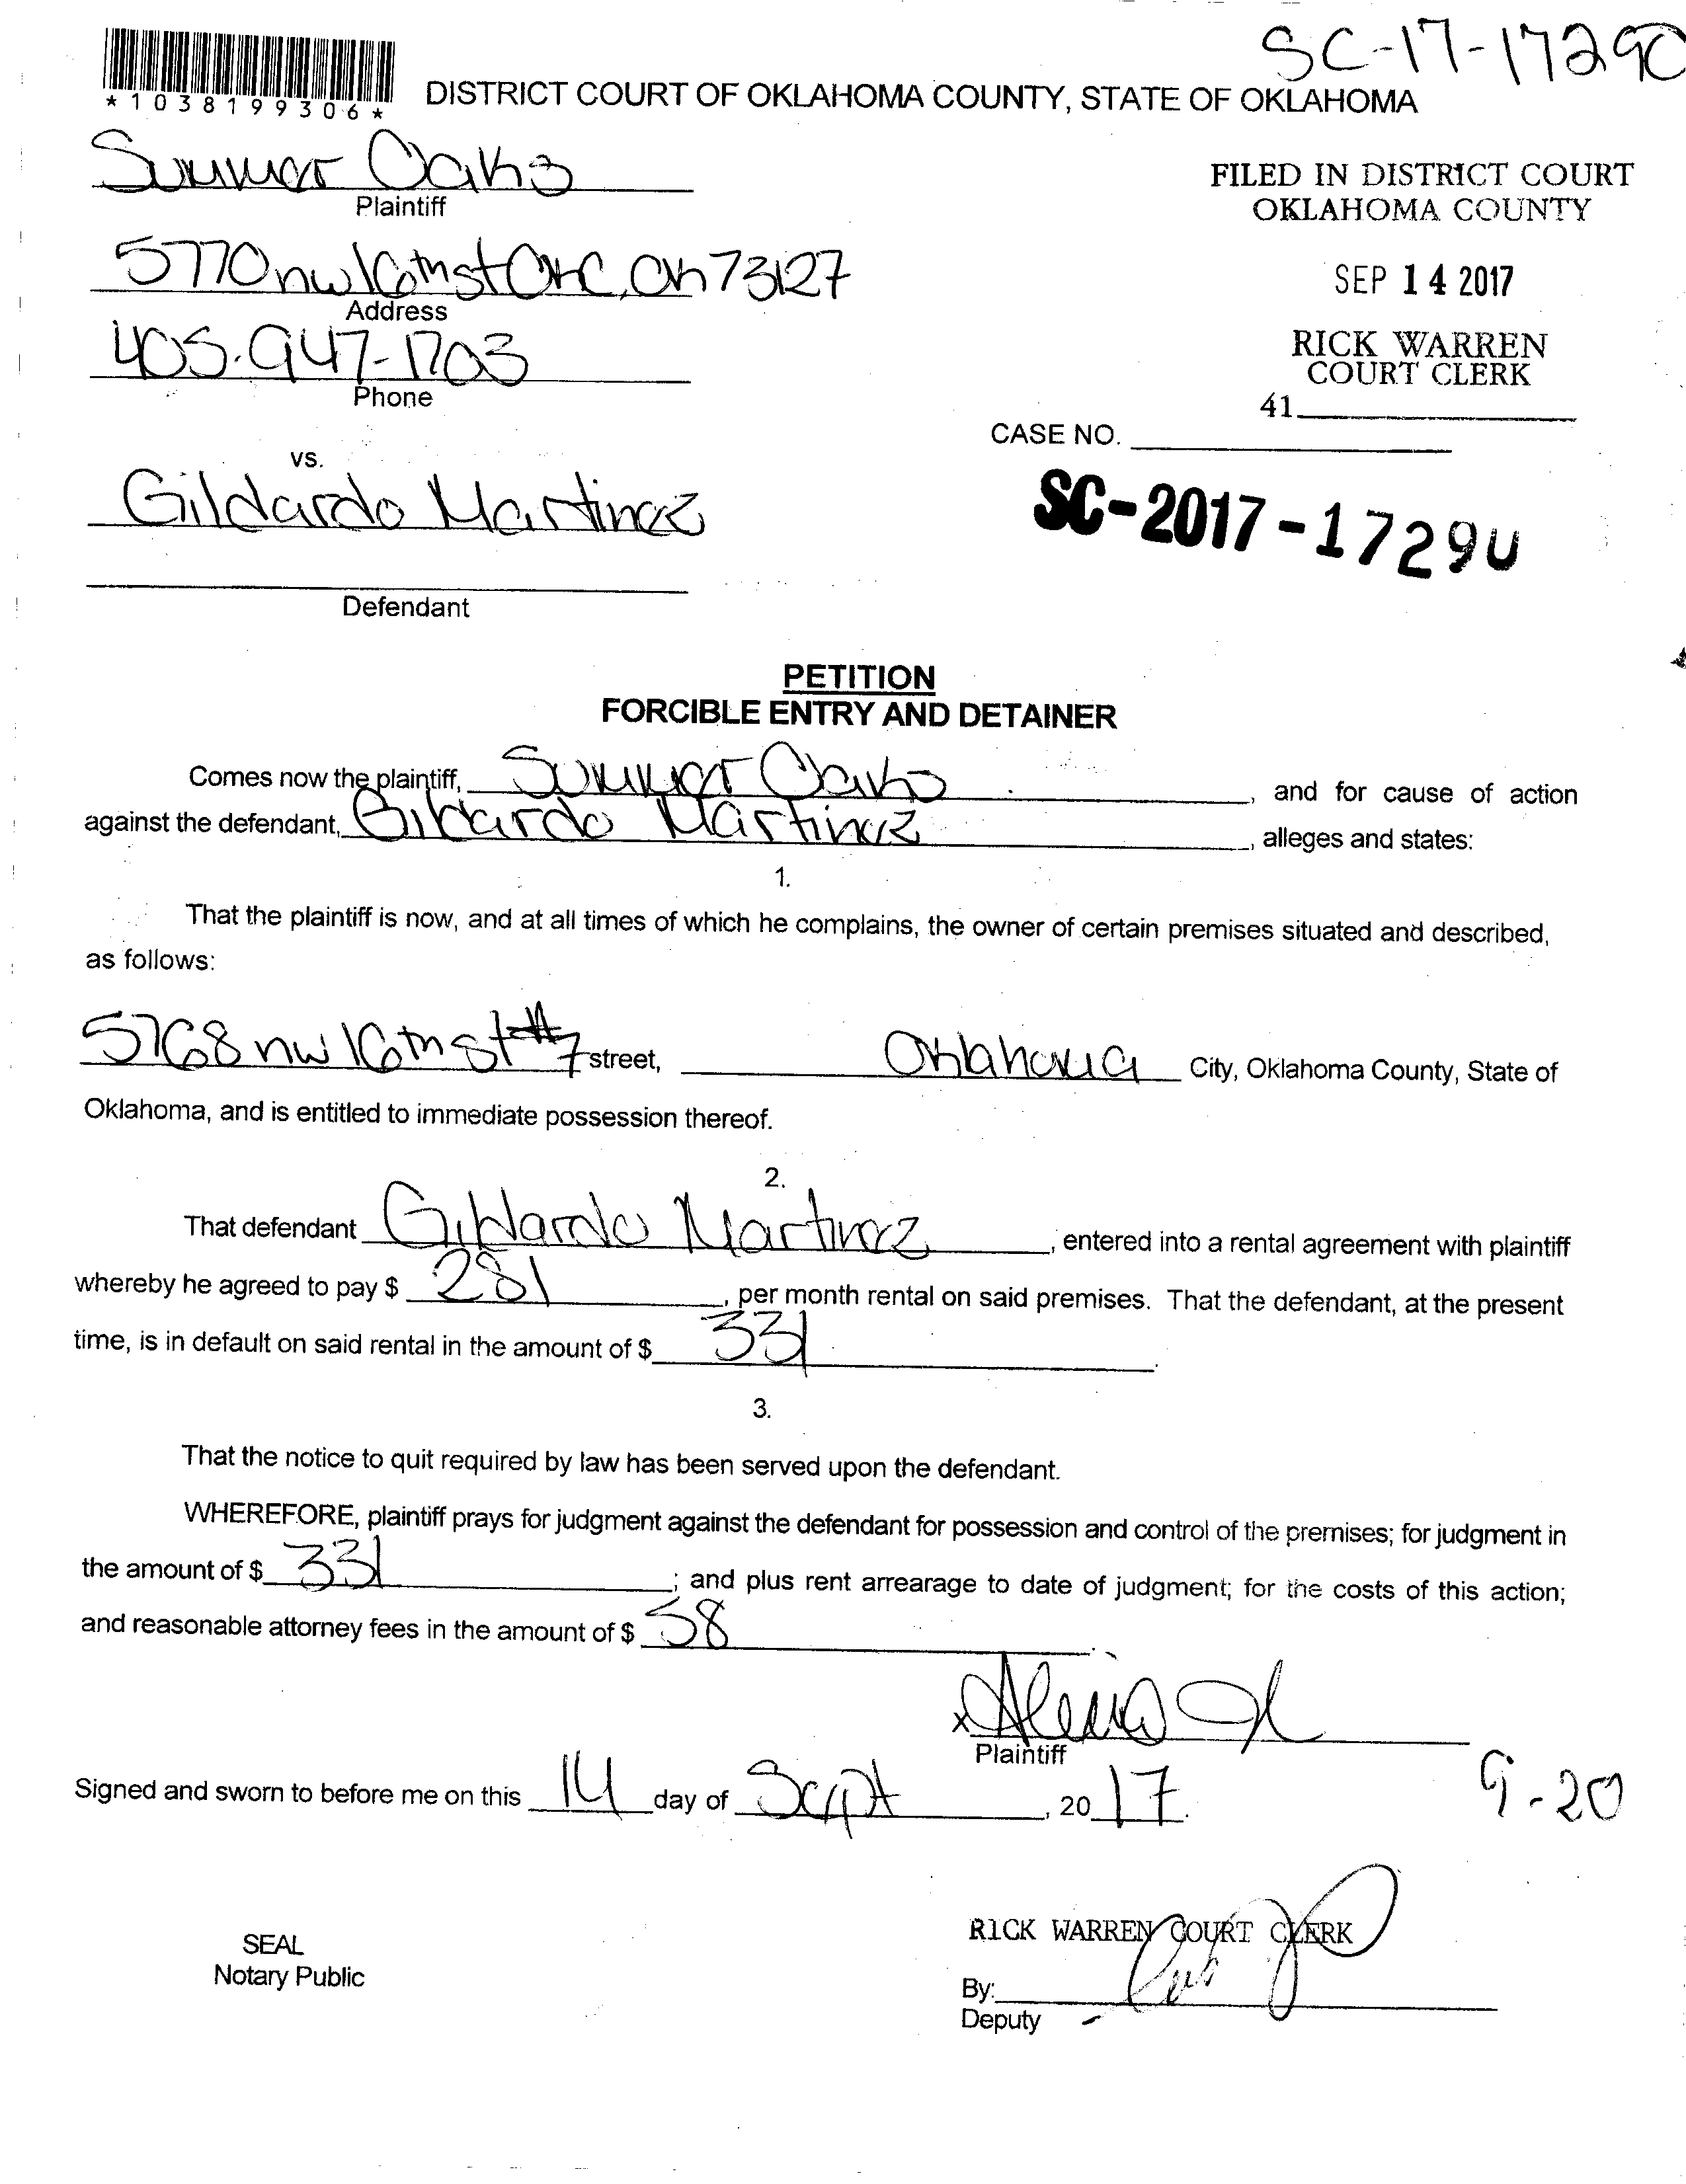 SC-17-17290
*1038199306*
DISTRICT COURT OF OKLAHOMA COUNTY, STATE OF OKLAHOMA
Summer Oaks
Plaintiff
FILED IN DISTRICT COURT
OKLAHOMA COUNTY
5770 nw 16th st OKC, OK 73127
Address
SEP 14 2017
405-947-1703
Phone
RICK WARREN
COURT CLERK
41
CASE NO.
vs.
Gildardo Martinez
SC-2017-17290
Defendant
PETITION
FORCIBLE ENTRY AND DETAINER
Comes now the plaintiff, Summer Oaks, and for cause of action
against the defendant, Gildardo Martinez, alleges and states:
1.
That the plaintiff is now, and at all times of which he complains, the owner of certain premises situated and described,
as follows:
5768 nw 16th st #7 street, Oklahoma City, Oklahoma County, State of
Oklahoma, and is entitled to immediate possession thereof.
2.
That defendant Gildardo Martinez, entered into a rental agreement with plaintiff
whereby he agreed to pay $ 281, per month rental on said premises. That the defendant, at the present
time, is in default on said rental in the amount of $ 331.
3.
That the notice to quit required by law has been served upon the defendant.
WHEREFORE, plaintiff prays for judgment against the defendant for possession and control of the premises; for judgment in
the amount of $ 331; and plus rent arrearage to date of judgment; for the costs of this action;
and reasonable attorney fees in the amount of $ 58.
x
Plaintiff
Signed and sworn to before me on this 14 day of Sept, 2017.
9-20
SEAL
Notary Public
RICK WARREN COURT CLERK
By:
Deputy